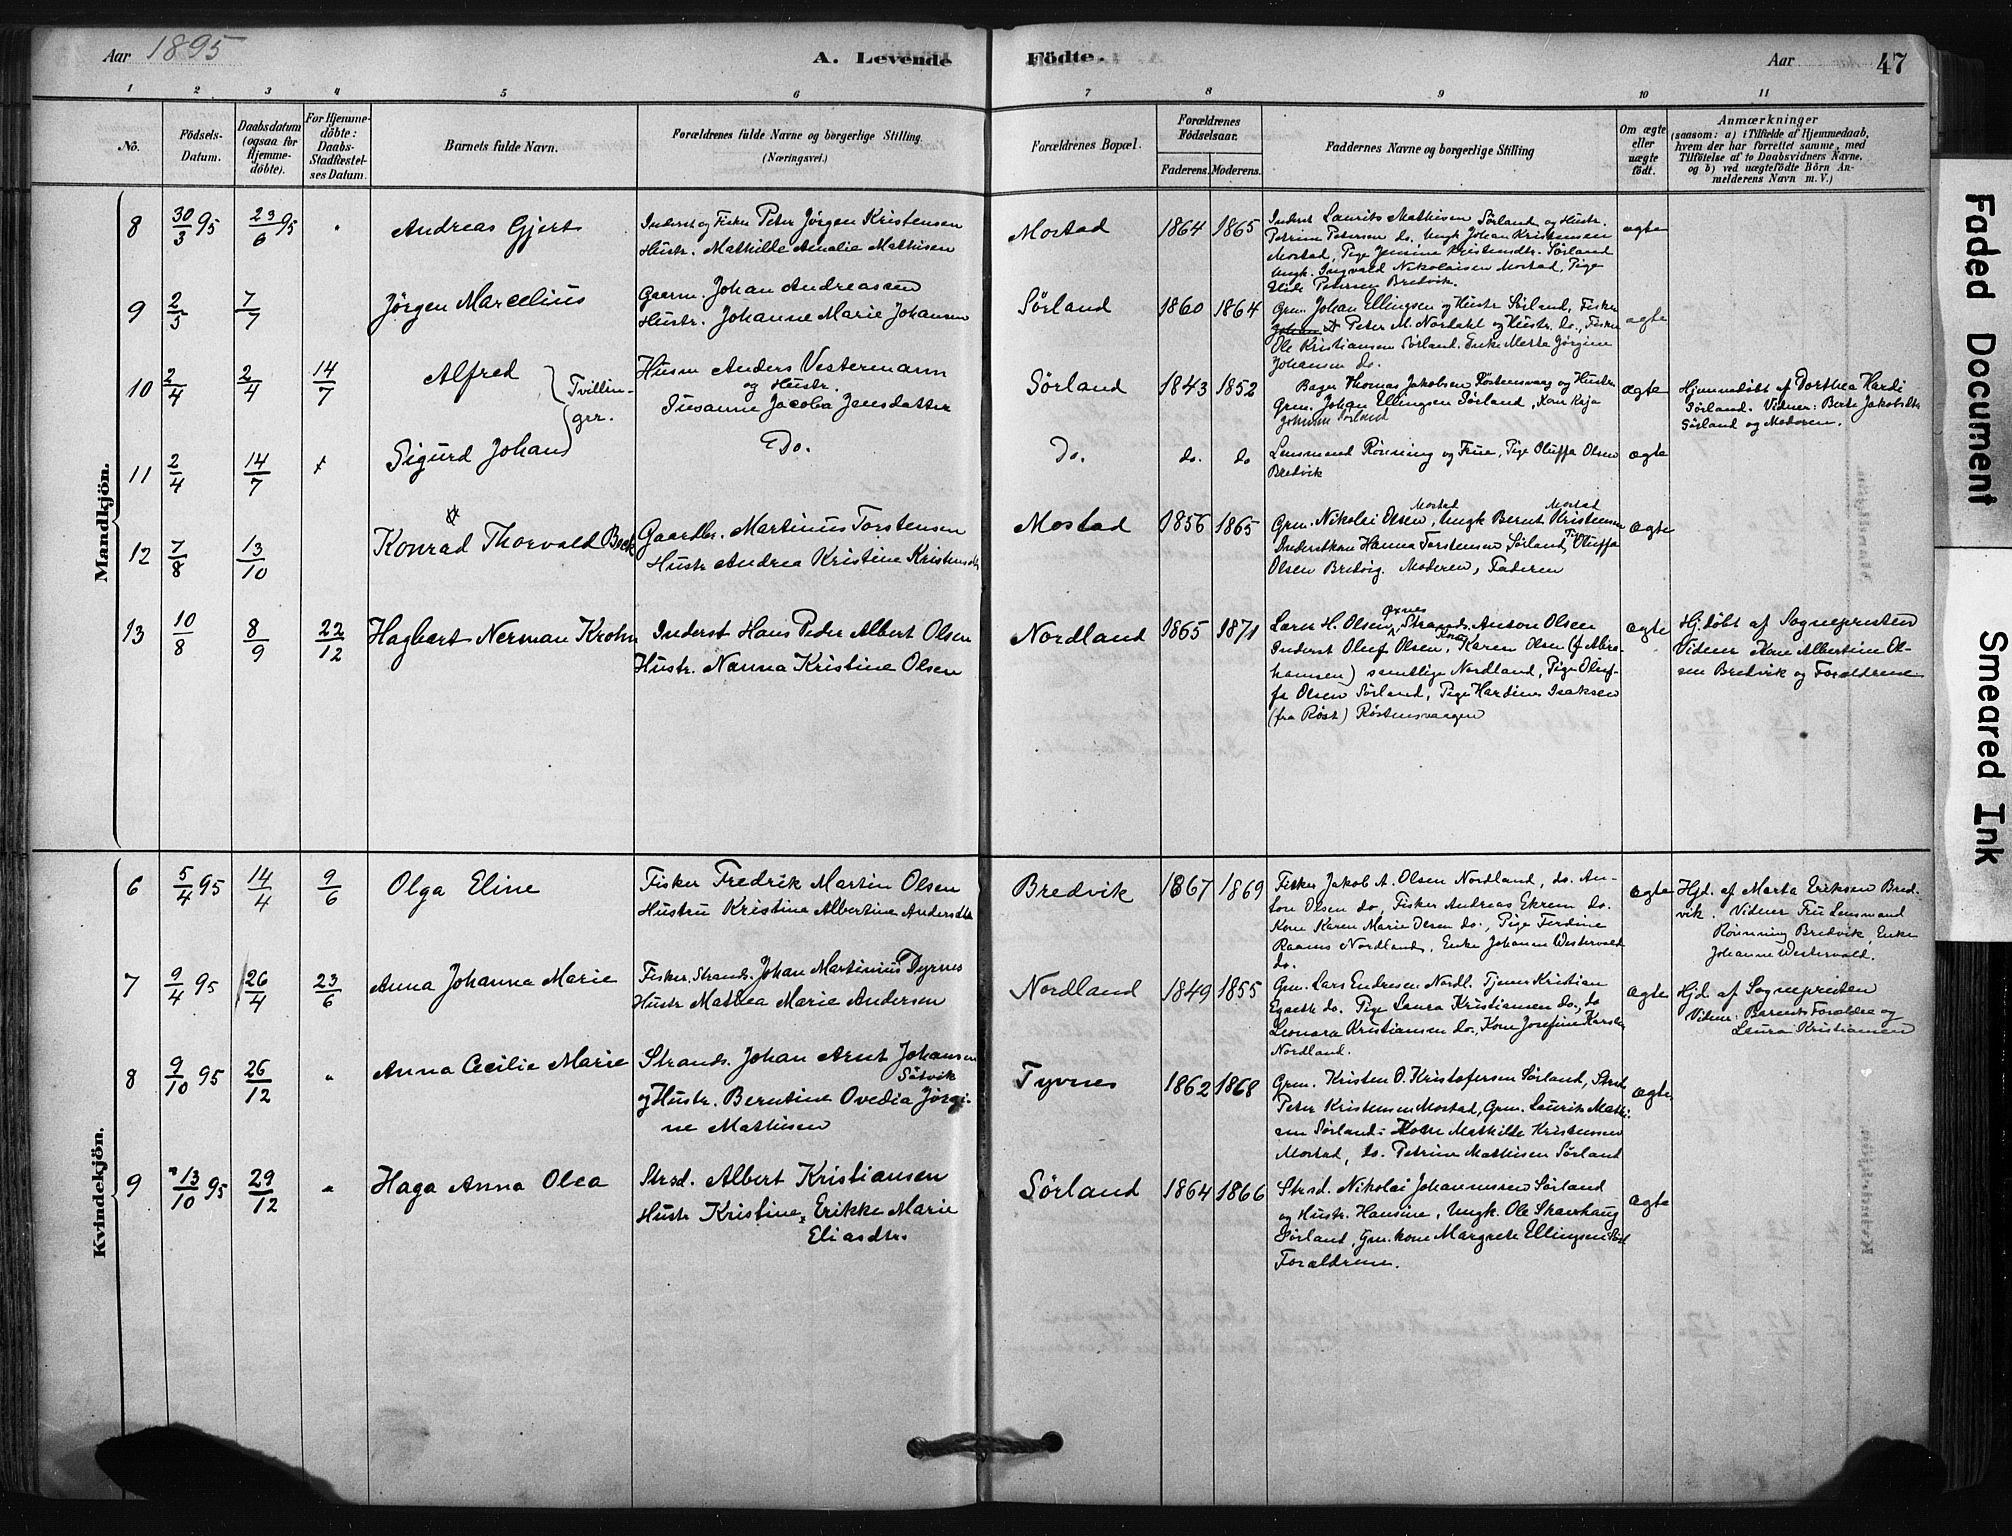 Aar 1895
A. Levende Födte.
Aar
47
1 2 3 4 5 6 7 8 9 10 11
No.
Födsels-Datum.
Daabsdatum (ogsaa for Hjemme-döbte).
For Hjemme-döbte: Daabs-Stadfæstel-ses Datum.
Barnets fulde Navn.
Forældrenes fulde Navne og borgerlige Stilling.
(Næringsvei.)
Forældrenes Bopæl.
Forældrenes Födselsaar.
Faderens. Moderens.
Faddernes Navne og borgerlige Stilling
Om ægte eller uægte födt.
Anmærkninger
(saasom: a) i Tilfælde af Hjemmedaab,
hvem der har forrettet samme, med
Tilföielse af to Daabsvidners Navne,
og b) ved uægtefödte Börn An-
melderens Navn m. V.)
Mandkjön.
8 30/3 95 23/6 95 " Andreas Gjert
Inderst og Fisker Peter Jørgen Kristensen
Hustr. Mathilde Amalia Mathisen
Mostad 1864 1865
Inderst Laurits Mathisen Sørland og Hustr.
Petrine Petersen do. Ungk. Johan Kristensen
Mostad, Pige Jensine Kristensdtr. Sørland
Ungk. Ingvald Nikolaisen Mostad, Pige
Petersen Bredvik.
ægte
9 2/3 7/7 Jörgen Marcelius
Gaarm. Johan Andreassen
Hustr. Johanne Marie Johansen
Sørland 1860 1864
Grm. Johan Ellingsen og Hustr. Sørland, Fisker
Peter M. Nordahl og Hustr. do., Fisker
Ole Kristiansen Sørland. Enke Merta Jørgine
Johansen do.
ægte
10 2/4 2/4 14/7 Alfred
Tvillin-
ger.
Husm Anders Vestermann
og Hustr.
Susanne Jacobva Jensdatter
Sørland 1843 1852
Bager Thomas Jakobsen Röstensvaag og Hustr.
Grm. Johan Ellingsen Sørland, Kone Kaja
Johnsen Sørland
ægte
Hjemmedöbt af Dorthea Hardi
Sørland. Vidner: Berte Jakobsdtr
Sørland og Moderen.
11 2/4 14/7 Sigurd Johan
Do.
Do. do. do
Lensmand Rønning og Frue, Pige Oluffa Olsen
Bredvik
ægte
12 7/8 13/10 Konrad Thorvald Beck
Gaardbr. Martinus Torstensen
Hustr Andrea Kristine Kristensdtr
Mostad 1856 1865
Mostad Mostad
Grm. Nikolai Olsen, Ungk Bernt Kristensen
Inderstkone Hanna Torstensen Sørland, Pige Oluffa
Olsen Bredvig. Moderen, Faderen
ægte
13 10/8 8/9 22/12 Hagbart Nerman Krohn
Inderst Hans Peder Albert Olsen
Hustr. Nanna Kristine Olsen
Nordland 1865 1871
Lærer H. Olsen, Strands. Anton Olsen
Inderst Oluf Olsen, Kone Karen Olsen (f. Abra-
hamsen) samtlige Nordland, Pige Oluf-
fa Olsen Sørland, Pige Hardine Isaksen
(fra Røst) Røstensvaagen
ægte
Hj. döbt af Sognepresten
Vidner Kone Albertine Ol-
sen Bredvik og Forældrene
Kvindekjön.
6 5/4 95 14/4 9/6 Olga Eline
Fisker Fredrik Martin Olsen
Hustru Kristine Albertine Andersdtr
Bredvik 1867 1869
Fisker Jakob A. Olsen Nordland, do. An-
ton Olsen do, Fisker Andreas Ekrem do.
Kone Karen Marie Olsen do., Pige Ferdine
Raanes Nordland, Enke Johanne Westervald
do.
ægte
Hjd. af Marta Eriksen Bred-
vik. Vidner Fru Lensmand
Rønning Bredvik, Enke
Johanne Westervald.
7 9/4 95 26/4 23/6 Anna Johanna Marie
Fisker. Strands. Johan Martinius Dyrnes
Hustr Mathea Marie Andersen
Nordland 1849 1855
Grm. Lars Endresen Nordl. Tjener Kristian
do. Pige Laura Kristiansen do., do
Leonara Kristiansen do., Kone Josefine
Nordland.
ægte
Hjd. af Sognepresten
Vidner: Barnets Forældre og
Laura Kristiansen
8 9/10 95 26/12 " Anna Cecilie Marie
Strands. Johan Arnt Johansen
Sötvik
og Hustr. Berntine Ovedia Jørgi-
ne Mathisen
Tyvnes 1862 1868
Grm. Kristen O. Kristofersen Sørland, Strds
Peter Kristensen Mostad, Grm. Laurits Mathi-
sen Sørland: Kone Mathilde Kristensen
Mostad, do. Petrine Mathisen Sørland
ægte
9 13/10 95 29/12 " Haga Anna Olea
Strsd. Albert Kristiansen
Hustr Kristine, Erikke Marie
Eliasdtr.
Sørland 1864 1866
Strsd. Nikolai Johannessen Sørland
og Hustr. Hansine, Ungk. Ole Skarhaug
Sørland, Grm. kone Margrete Ellingsen Sørl
Forældrene.
ægte
Faded Document
Smeared Ink